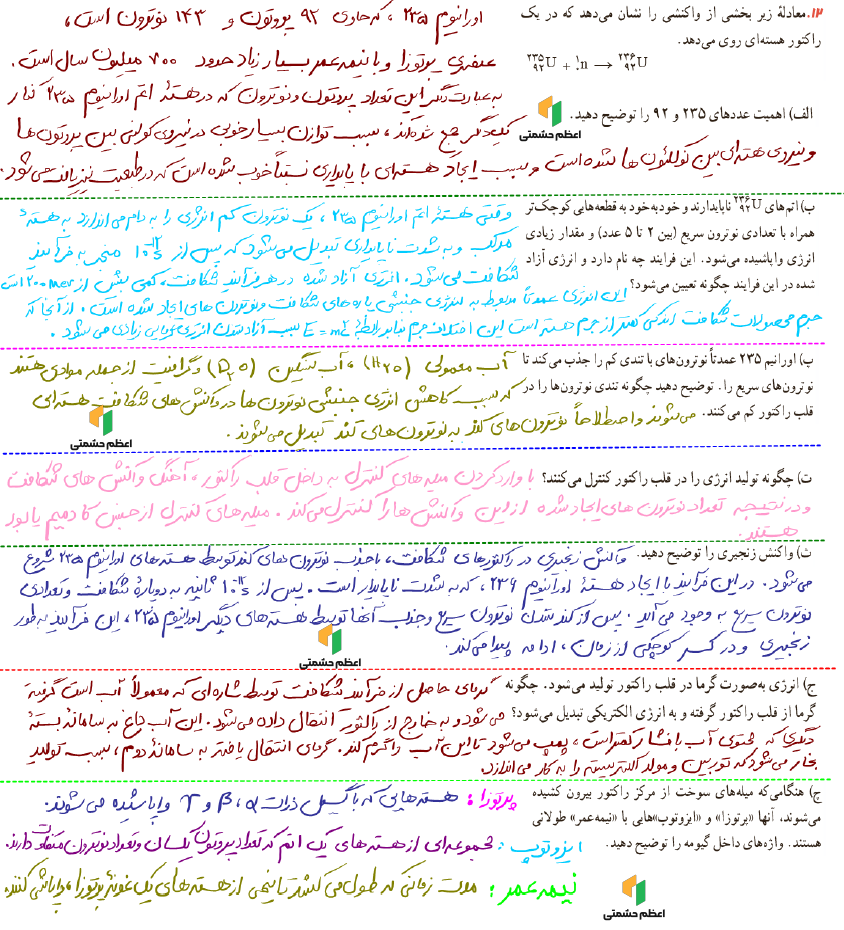 ۱۲.معادلهٔ زیر بخشی از واکنشی را نشان می‌دهد که در یک
راکتور هسته‌ای روی می‌دهد.
²³⁵₉₂U + ¹₀n → ²³⁶₉₂U
الف) اهمیت عددهای ۲۳۵ و ۹۲ را توضیح دهید.
اورانیوم ۲۳۵، که حاوی ۹۲ پروتون و ۱۴۳ نوترون است،
عنصری پرتوزا و با نیمه عمر بسیار زیاد حدود ۷۰۰ میلیون سال است.
به عبارت دیگر این تعداد پروتون و نوترون که در هستهٔ اتم اورانیوم ۲۳۵ کنار
یکدیگر جمع شده‌اند، سبب توازن بسیار خوبی در نیروی کولنی بین پروتون ها
و نیروی هسته‌ای بین نوکلئون ها شده است و سبب ایجاد هسته‌ای با پایداری نسبتاً خوب شده است که در طبیعت نیز یافت می‌شود.
اعظم حشمتی
ب) اتم‌های ²³⁶₉₂U ناپایدارند و خودبه‌خود به قطعه‌هایی کوچک‌تر
همراه با تعدادی نوترون سریع (بین ۲ تا ۵ عدد) و مقدار زیادی
انرژی واپاشیده می‌شود. این فرایند چه نام دارد و انرژی آزاد
شده در این فرایند چگونه تعیین می‌شود؟
وقتی هستهٔ اتم اورانیوم ۲۳۵، یک نوترون کم انرژی را به دام می اندازد به هستهٔ
مرکب و به شدت ناپایداری تبدیل می‌شود که پس از ۱۰⁻¹² s منجر به فرآیند
شکافت می‌شود. انرژی آزاد شده در هر فرآیند شکافت، کمی بیش از ۲۰۰ Mev است
این انرژی عمدتاً مربوط به انرژی جنبشی پاره های شکافت و نوترون های ایجاد شده است. از آنجا که
جرم محصولات شکافت اندکی کمتر از جرم هسته است این اختلاف جرم بنا بر رابطهٔ E = mc² سبب آزاد شدن انرژی گرمایی زیادی می شود.
پ) اورانیم ۲۳۵ عمدتاً نوترون‌های با تندی کم را جذب می‌کند تا
نوترون‌های سریع را. توضیح دهید چگونه تندی نوترون‌ها را در
قلب راکتور کم می‌کنند.
آب معمولی (H₂O)، آب سنگین (D₂O) و گرافیت از جمله موادی هستند
که سبب کاهش انرژی جنبشی نوترون ها در واکنش های شکافت هسته‌ای
می‌شوند و اصطلاحاً نوترون های تند به نوترون های کند تبدیل می‌شوند.
اعظم حشمتی
ت) چگونه تولید انرژی را در قلب راکتور کنترل می‌کنند؟
با وارد کردن میله های کنترل به داخل قلب راکتور، آهنگ واکنش های شکافت
و در نتیجه تعداد نوترون های ایجاد شده از این واکنش ها را کنترل می کند. میله های کنترل از جنس کادمیم یا بور
هستند.
ث) واکنش زنجیری را توضیح دهید.
واکنش زنجیری در راکتورهای شکافت، با جذب نوترون های کند توسط هسته های اورانیوم ۲۳۵ شروع
می‌شود. در این فرآیند با ایجاد هستهٔ اورانیوم ۲۳۶، که به شدت ناپایدار است. پس از ۱۰⁻¹² ثانیه به دوپارهٔ شکافت و تعدادی
نوترون سریع به وجود می آید. پس از کند شدن نوترون سریع و جذب آنها توسط هسته های دیگر اورانیوم ۲۳۵، این فرآیند به طور
زنجیری و در کسر کوچکی از زمان، ادامه پیدا می‌کند.
اعظم حشمتی
ج) انرژی به‌صورت گرما در قلب راکتور تولید می‌شود. چگونه
گرما از قلب راکتور گرفته و به انرژی الکتریکی تبدیل می‌شود؟
گرمای حاصل از فرآیند شکافت توسط شاره‌ای که معمولاً آب است گرفته
می شود و به خارج از راکتور انتقال داده می‌شود. این آب داغ به سامانهٔ بستهٔ
دیگری که محتوی آب با فشار کمتر است، پمپ می‌شود تا این آب را گرم کند. گرمای انتقال یافته به سامانهٔ دوم، سبب تولید
بخار می‌شود که توربین و مولد الکتریسیته را به کار می اندازد.
چ) هنگامی‌که میله‌های سوخت از مرکز راکتور بیرون کشیده
می‌شوند، آنها «پرتوزا» و «ایزوتوپ»هایی با «نیمه‌عمر» طولانی
هستند. واژه‌های داخل گیومه را توضیح دهید.
پرتوزا: هسته هایی که با گسیل ذرات α، β و γ واپاشیده می شوند.
ایزوتوپ: مجموعه‌ای از هسته های یک اتم که تعداد پروتون یکسان و تعداد نوترون متفاوت دارند.
نیمه عمر: مدت زمانی که طول می کشد تا نیمی از هسته های یک نمونهٔ پرتوزا، واپاشی کنند.
اعظم حشمتی